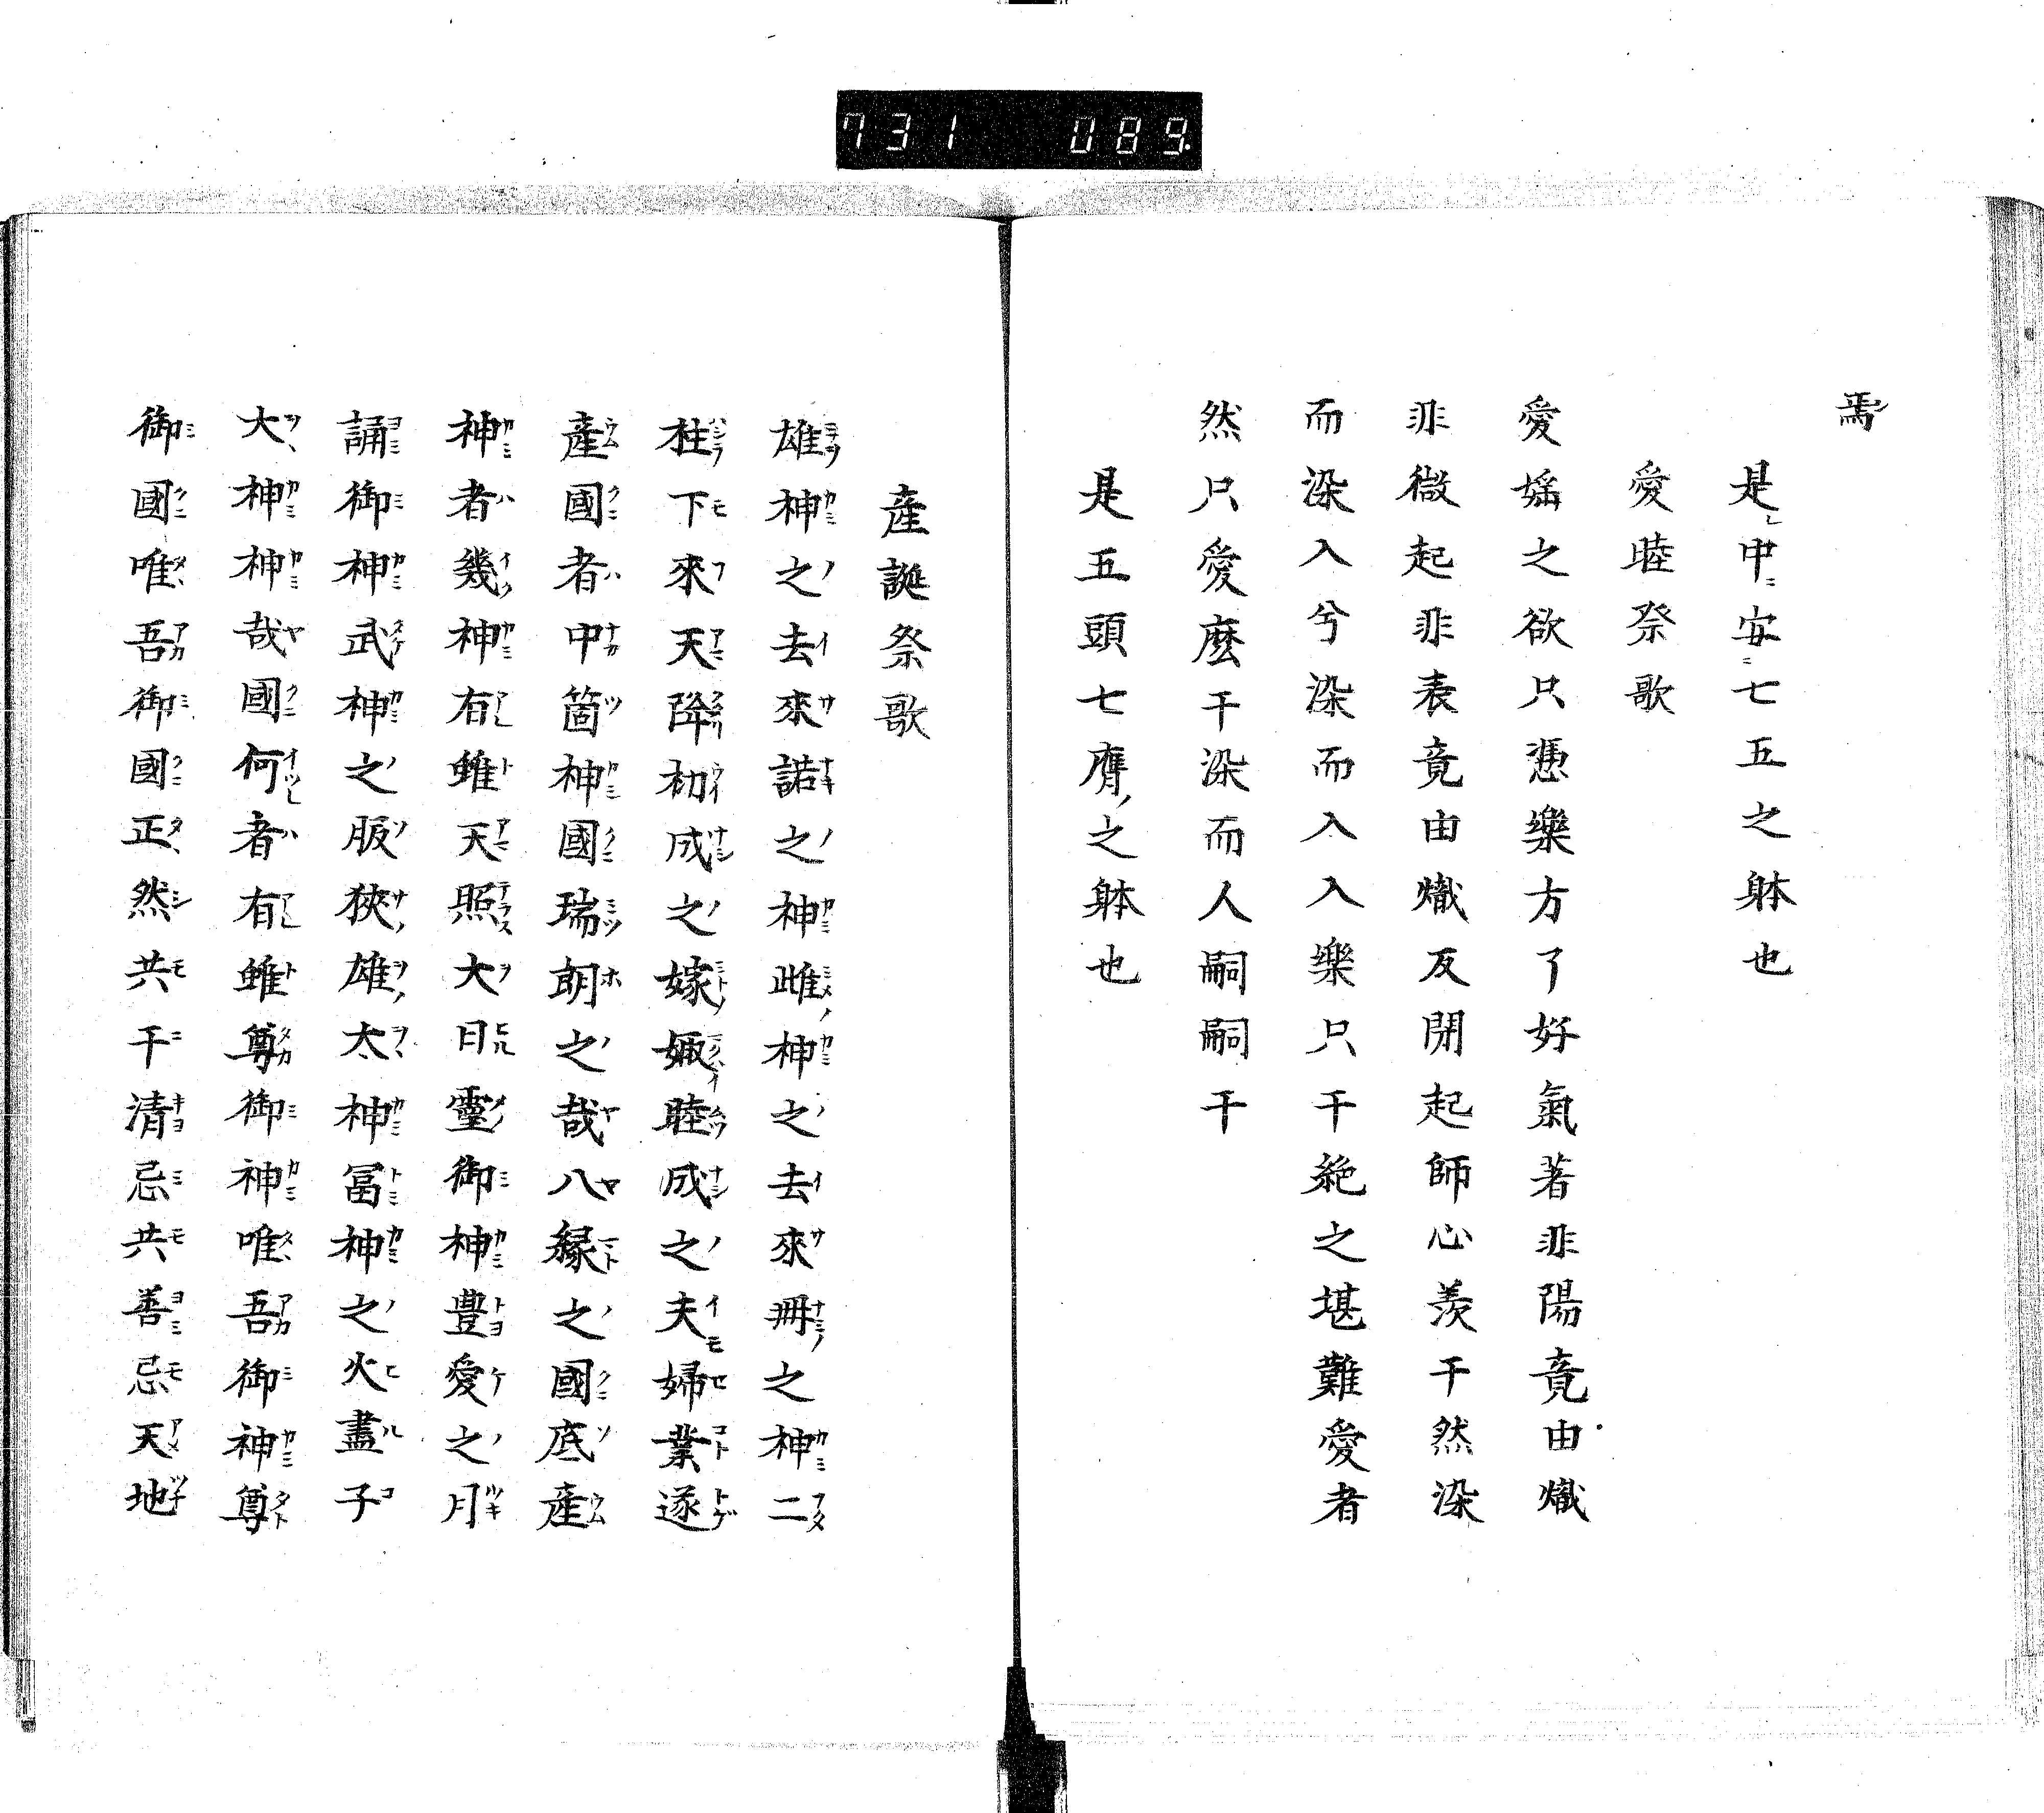 731 089.
焉
是中安七五之躰也
愛睦祭歌
愛婬之欲只憑樂方了好氣著非陽竟由熾
非微起非表竟由熾反閉起師心羨干然染
而染入兮染而入入樂只干絶之堪難愛者
然只愛麼干染而人嗣嗣干
是五頭七膺之躰也
產誕祭歌
雄神之去來諾之神雌神之去來冊之神二
柱下來天降初成之嫁姻睦成之夫婦業遂
產國者中箇神國瑞朗之哉八縁之國底產
神者幾神有雖天照大日靈御神豊愛之月
誦御神武神之服狹雄大神冨神之火盡子
大神神哉國何者有雖尊御神唯吾御神尊
御國唯吾御國正然共干清忌共善忌天地